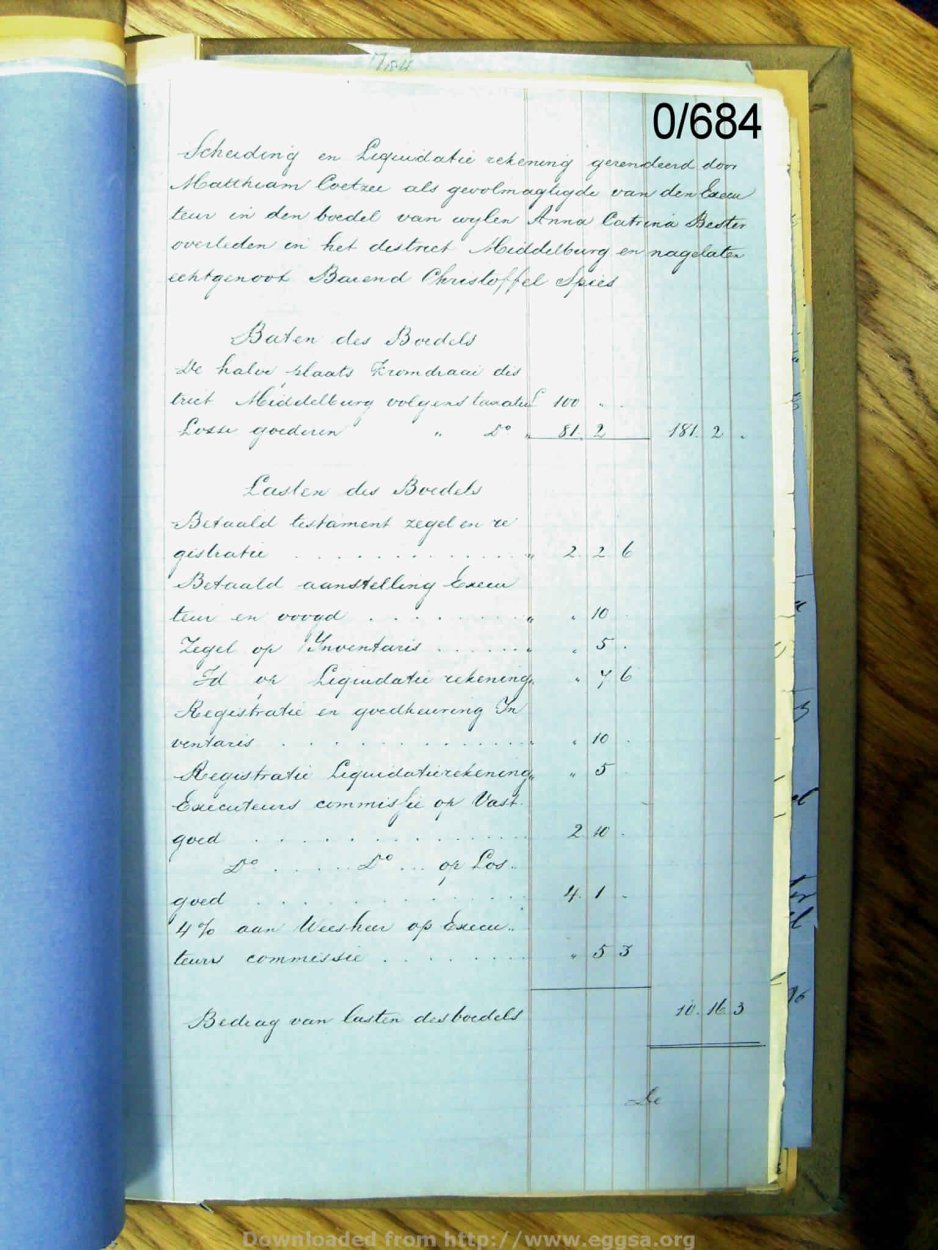 0/684
Scheiding en Liquidatie rekening gerendeerd door
Matthiam Coetzee als gevolmagtigde van den Execu
teur in den boedel van wylen Anna Catrina Bester
overleden in het district Middelburg en nagelaten
echtgenoot Barend Christoffel Spies
Baten des Boedels
De halve plaats Kromdraai dis
trict Middelburg volgens taxatie £ 100 " "
Losse goederen " Do " 81 2 181 2 "
Lasten des Boedels
Betaald testament zegel en re
gistratie . . . . . . . . . . . . " 2 2 6
Betaald aanstelling Execu
teur en voogd . . . . . . . . . " " 10
Zegel op Inventaris . . . . . . " " 5 .
Id op Liquidatie rekening " " 7 6
Registratie en goedkeuring In
ventaris . . . . . . . . . . . . " " 10 .
Registratie Liquidatierekening " " 5
Executeurs commissie op Vast
goed . . . . . . . . . . . . . . 2 10 .
Do . . . . . Do . . . op Los..
goed . . . . . . . . . . . . . . 4 1 .
4% aan Weesheer op Execu..
teurs commissie . . . . . . . . " 5 3
Bedrag van lasten des boedels 10 16 3
De
Downloaded from http://www.eggsa.org